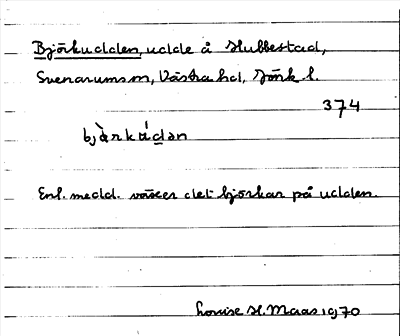 Björkudden, udde å Hubbestad,
Svenarums sn, Västra hd, Jönk l.
374
bjǜrkùdən
Enl. medd. växer det björkar på udden.
Louise H. Maas 1970